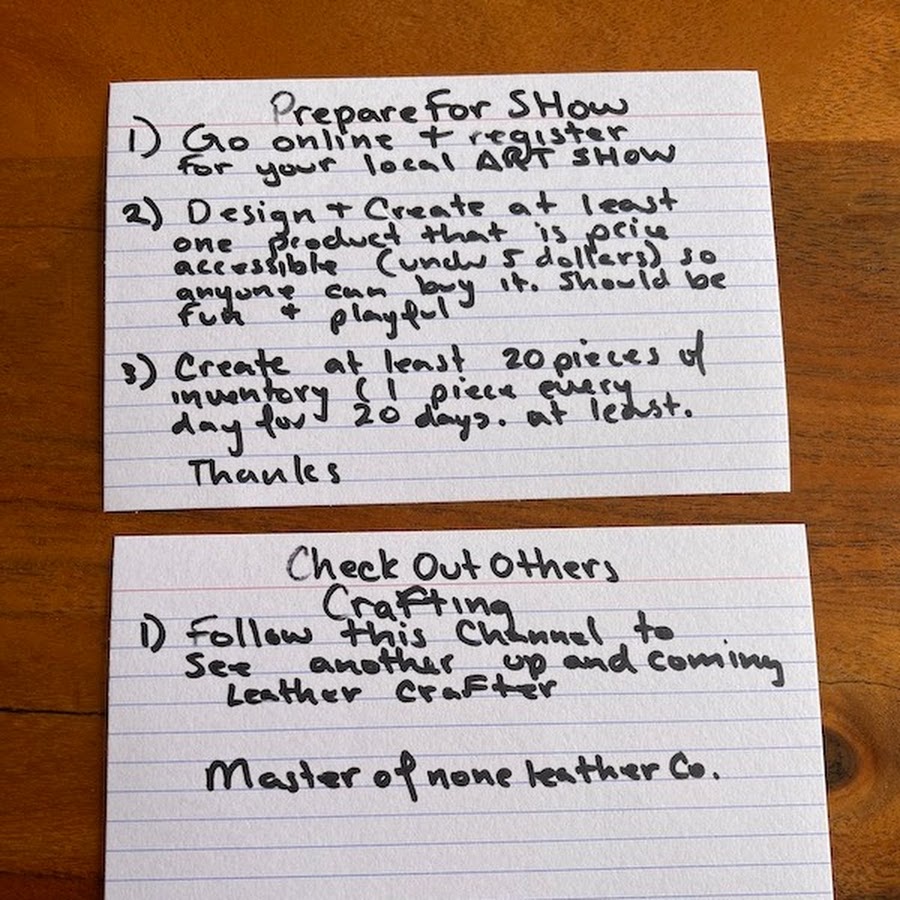 Prepare For SHow
1) Go online + register
for your local ART SHOW
2) Design + Create at least
one product that is price
accessible (under 5 dollars) so
anyone can buy it. Should be
fun + playful
3) Create at least 20 pieces of
inventory (1 piece every
day for 20 days. at least.
Thanks
Check Out Others
Crafting
1) Follow this Channel to
See another up and coming
Leather Crafter
Master of none leather Co.